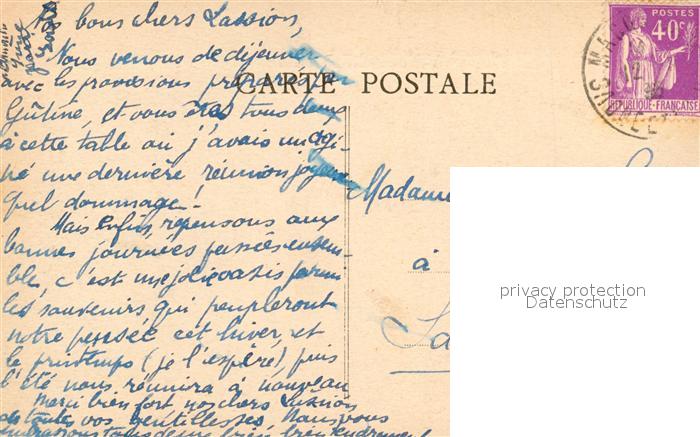 Mes bons chers Lassion,
Nous venons de déjeuner
avec les provisions préparées par
Gûtiné, et vous êtes tous deux
à cette table où j'avais imagi-
né une dernière réunion joyeuse
quel dommage!
Mais enfin, repensons aux
bonnes journées passées ensem-
ble, c'est une jolie oasis parmi
les souvenirs qui peupleront
notre pensée cet hiver, et
le printemps (je l'espère) puis
l'été nous réunira à nouveau
Merci bien fort nos chers Lassion
de toutes vos gentillesses. Nous vous
tous deux bien bien tendrement
CARTE POSTALE
POSTES
40c
REPUBLIQUE-FRANÇAISE
Madame
à
La
privacy protection
Datenschutz